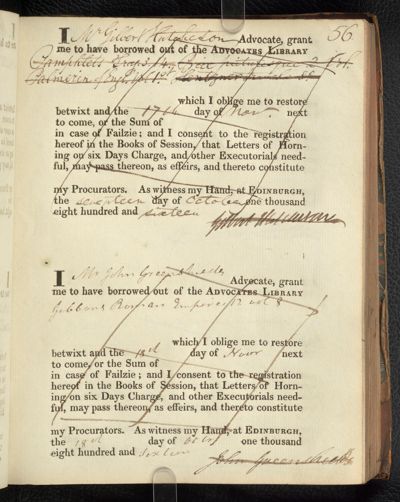 56
I Mr Gilbert Hutcheson Advocate, grant
me to have borrowed out of the Advocates Library
Pamphlets
Palmerin of Engld
which I oblige me to restore
betwixt and the 17th day of Novr. next
to come, or the Sum of
in case of Failzie; and I consent to the registration
hereof in the Books of Session, that Letters of Horn-
ing on six Days Charge, and other Executorials need-
ful, may pass thereon, as effeirs, and thereto constitute
my Procurators. As witness my Hand, at Edinburgh,
the seventeen day of October one thousand
eight hundred and sixteen
Gilbert Hutcheson
I Mr John Greenshields
Advocate, grant
me to have borrowed out of the Advocates Library
Gibbons Roman Empire 12 vol 8
which I oblige me to restore
betwixt and the 18th day of Novr next
to come, or the Sum of
in case of Failzie; and I consent to the registration
hereof in the Books of Session, that Letters of Horn-
ing on six Days Charge, and other Executorials need-
ful, may pass thereon, as effeirs, and thereto constitute
my Procurators. As witness my Hand, at Edinburgh,
the 18th day of Octr one thousand
eight hundred and sixteen
John Greenshields